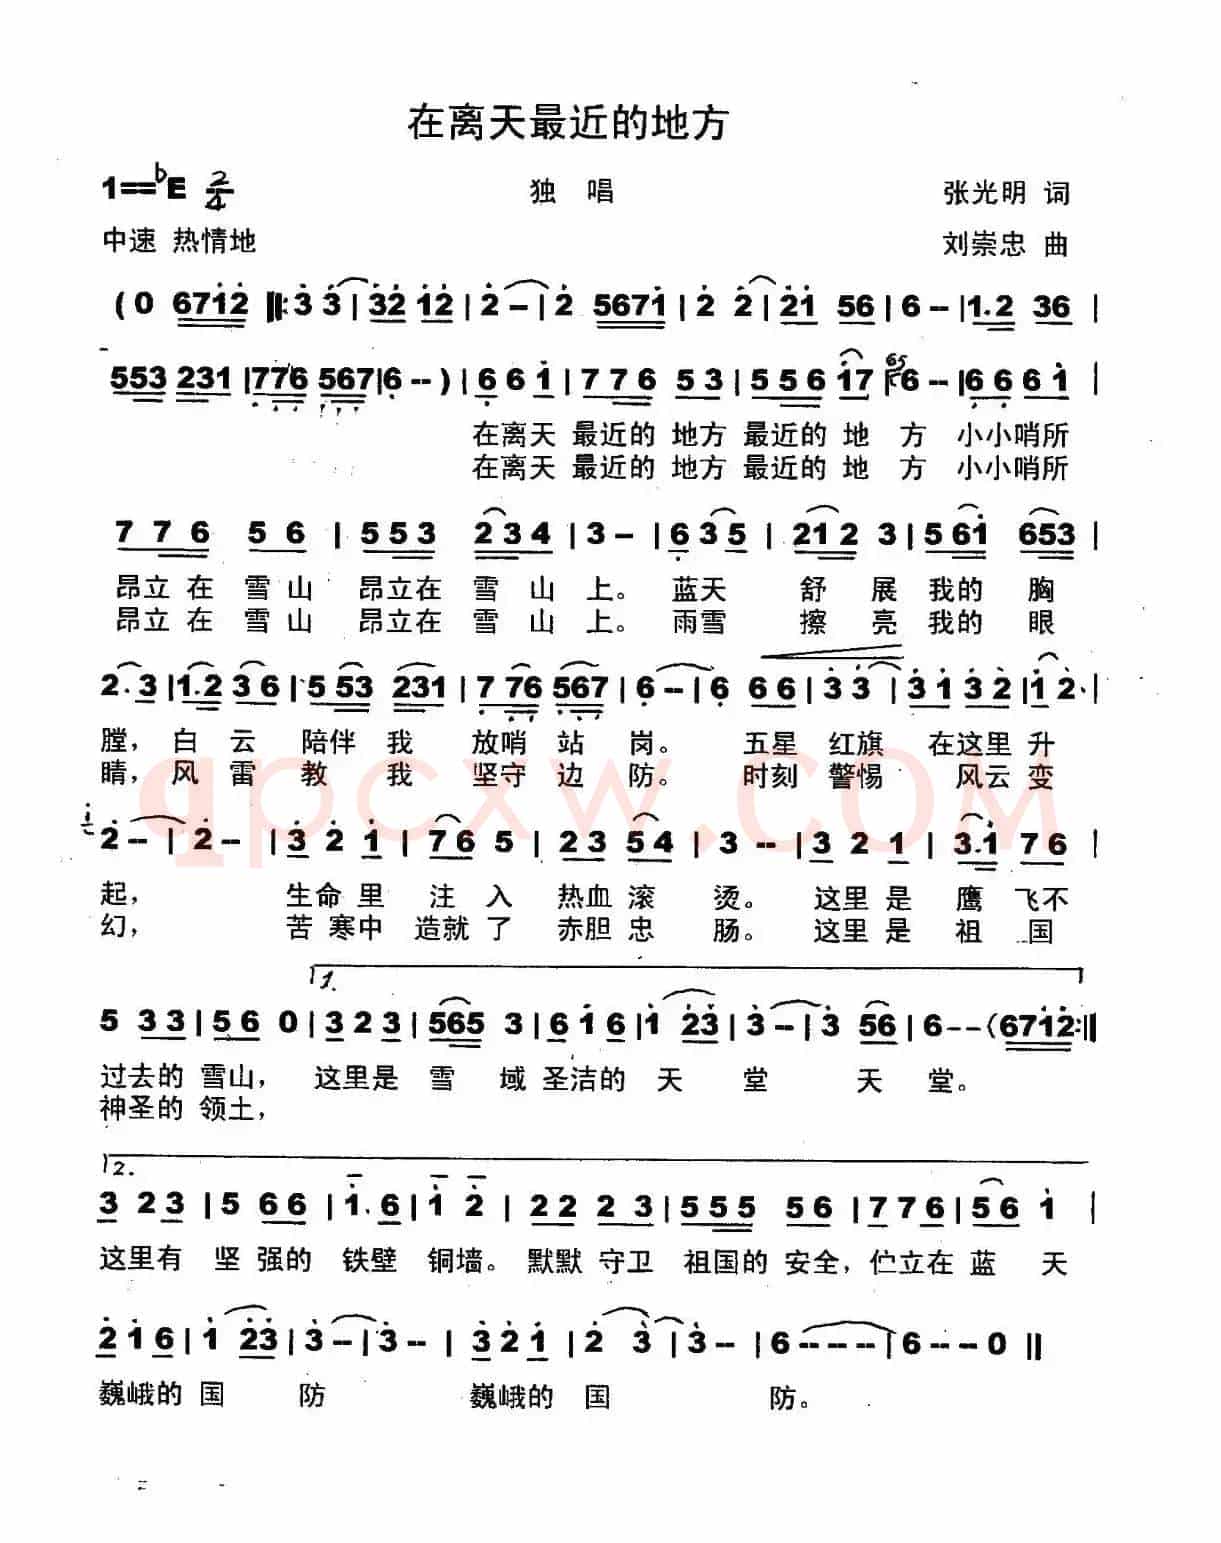 在离天最近的地方
1==♭E 2/4 独 唱 张光明 词
中速 热情地 刘崇忠 曲
( 0 6712 ‖: 3 3 | 32 12 | 2 – | 2 5671 | 2 2 | 21 56 | 6 -- | 1.2 36 |
553 231 | 776 567 | 6 -- ) | 6 6 1 | 7 7 6 5 3 | 5 5 6 17 | 65 6 -- | 6 6 6 1 |
在离天 最近的 地方 最近的 地 方 小小哨所
在离天 最近的 地方 最近的 地 方 小小哨所
7 7 6 5 6 | 5 5 3 2 3 4 | 3 – | 6 3 5 | 21 2 3 | 5 61 653 |
昂立 在 雪山 昂立在 雪 山 上。 蓝天 舒 展 我的 胸
昂立 在 雪山 昂立在 雪 山 上。 雨雪 擦 亮 我的 眼
2. 3 | 1.2 3 6 | 5 53 231 | 7 76 567 | 6 -- | 6 6 6 | 3 3 | 3 1 3 2 | 1 2. |
膛, 白 云 陪伴 我 放哨 站 岗。 五星 红旗 在这里 升
睛, 风 雷 教 我 坚守 边 防。 时刻 警惕 风云 变
1 2 -- | 2 -- | 3 2 1 | 76 5 | 2 3 5 4 | 3 -- | 3 2 1 | 3.1 7 6 |
起, 生命 里 注 入 热血 滚 烫。 这里 是 鹰 飞不
幻, 苦 寒中 造就 了 赤胆 忠 肠。 这里 是 祖 国
1.
5 3 3 | 5 6 0 | 3 2 3 | 565 3 | 6 1 6 | 1 23 | 3 -- | 3 56 | 6 -- ( 6712 :‖
过去的 雪山, 这里是 雪 域 圣洁的 天 堂 天 堂。
神圣的 领土,
2.
3 2 3 | 5 6 6 | 1. 6 | 1 2 | 2 2 2 3 | 5 5 5 5 6 | 7 7 6 | 5 6 1 |
这里有 坚 强的 铁壁 铜墙。 默默 守卫 祖国的 安全, 伫立在 蓝 天
2 1 6 | 1 23 | 3 -- | 3 -- | 3 2 1 | 2 3 | 3 -- | 6 --- | 6 -- 0 ‖
巍峨的 国 防 巍峨的 国 防。
qpcxw.com